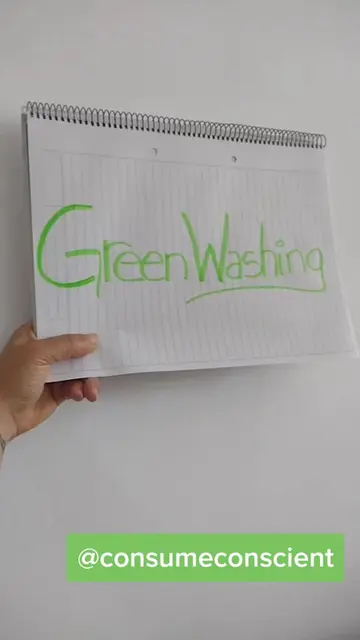 GreenWashing
@consumeconscient